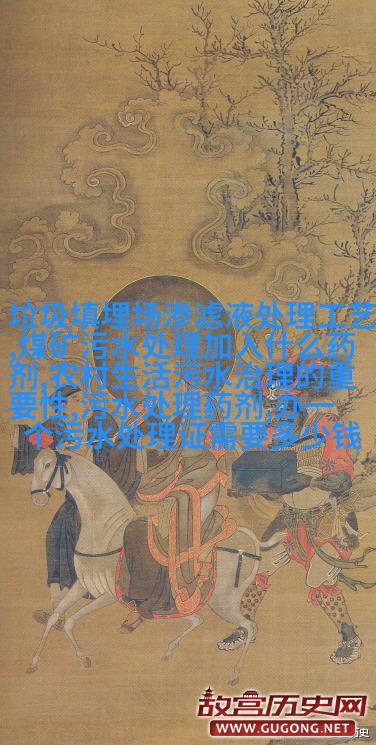 垃圾填埋场渗滤液处理工艺
,煤矿污水处理加入什么药
剂,农村生活污水治理的重
要性,污水处理药剂,办一
个污水处理证需要多少钱
故宫历史网
WWW.GUGONG.NET
历史